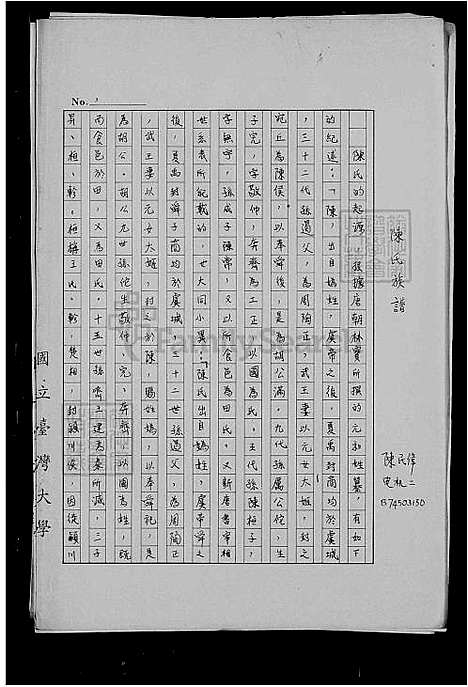 陳氏族譜
陳民偉
電机二
B74503150
No. 1
陳氏的起源，根據唐朝林寶所撰的元和姓纂，有如下
的紀述：「陳，出自媯姓，虞帝之後，夏禹封商均於虞城
，三十二代孫遏父，為周陶正，武王妻以元女大姬，封之
宛丘為陳侯，以奉舜後，是為胡公滿，九代孫厲公佗，生
子完，字敬仲，奔齊為工正，以國為氏，五代孫陳桓子，
字無宇，孫成子陳常，又以所食邑為田氏。」又新唐書宰相
世系表所記載的，也大同小異：「陳氏出自媯姓，虞帝舜之
後，夏禹封舜子商均於虞城，三十二世孫遏父，為周陶正
，武王妻以元女大姬，封之於陳，賜姓媯，以奉舜祀，是
為胡公。胡公九世孫佗生敬仲，完，奔齊，以國為姓，既
而食邑於田，又為田氏。十五世孫齊王建為秦所滅，三子
昇、桓、軫。桓稱王氏。軫，楚相，封潁川侯，因徙潁川
國立臺灣大學
FamilySearch